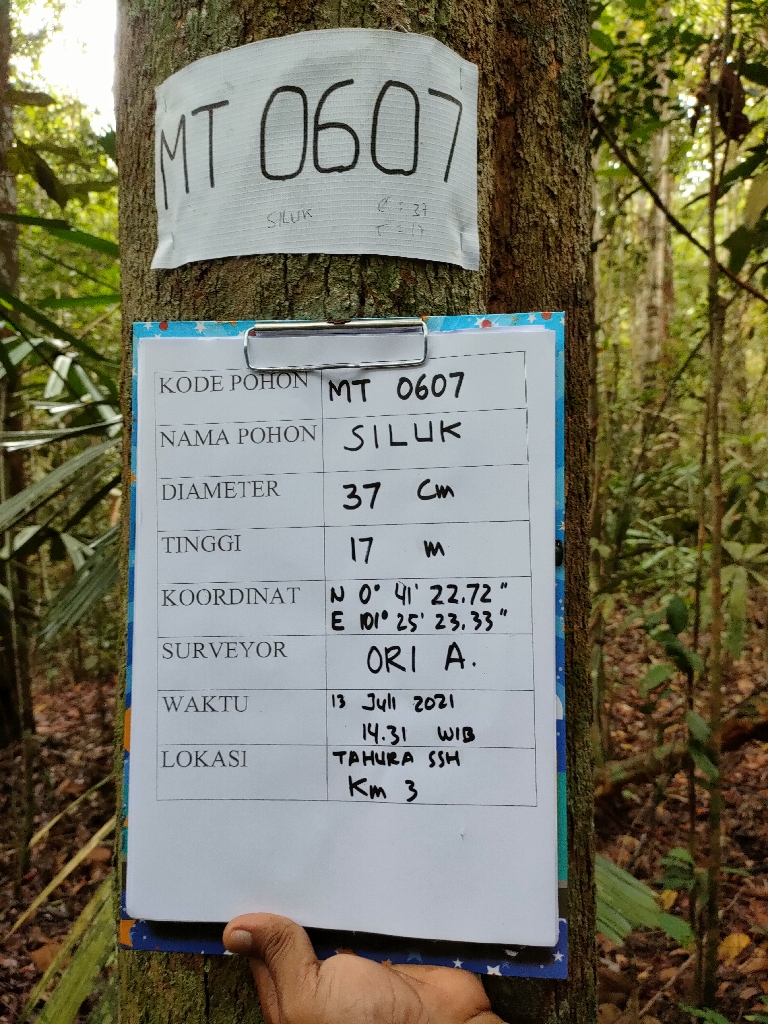 MT 0607
SILUK
C = 37
T = 17
KODE POHON MT 0607
NAMA POHON SILUK
DIAMETER 37 Cm
TINGGI 17 m
KOORDINAT N 0° 41' 22.72"
E 101° 25' 23.33"
SURVEYOR ORI A.
WAKTU 13 Juli 2021
14.31 WIB
LOKASI TAHURA SSH
Km 3